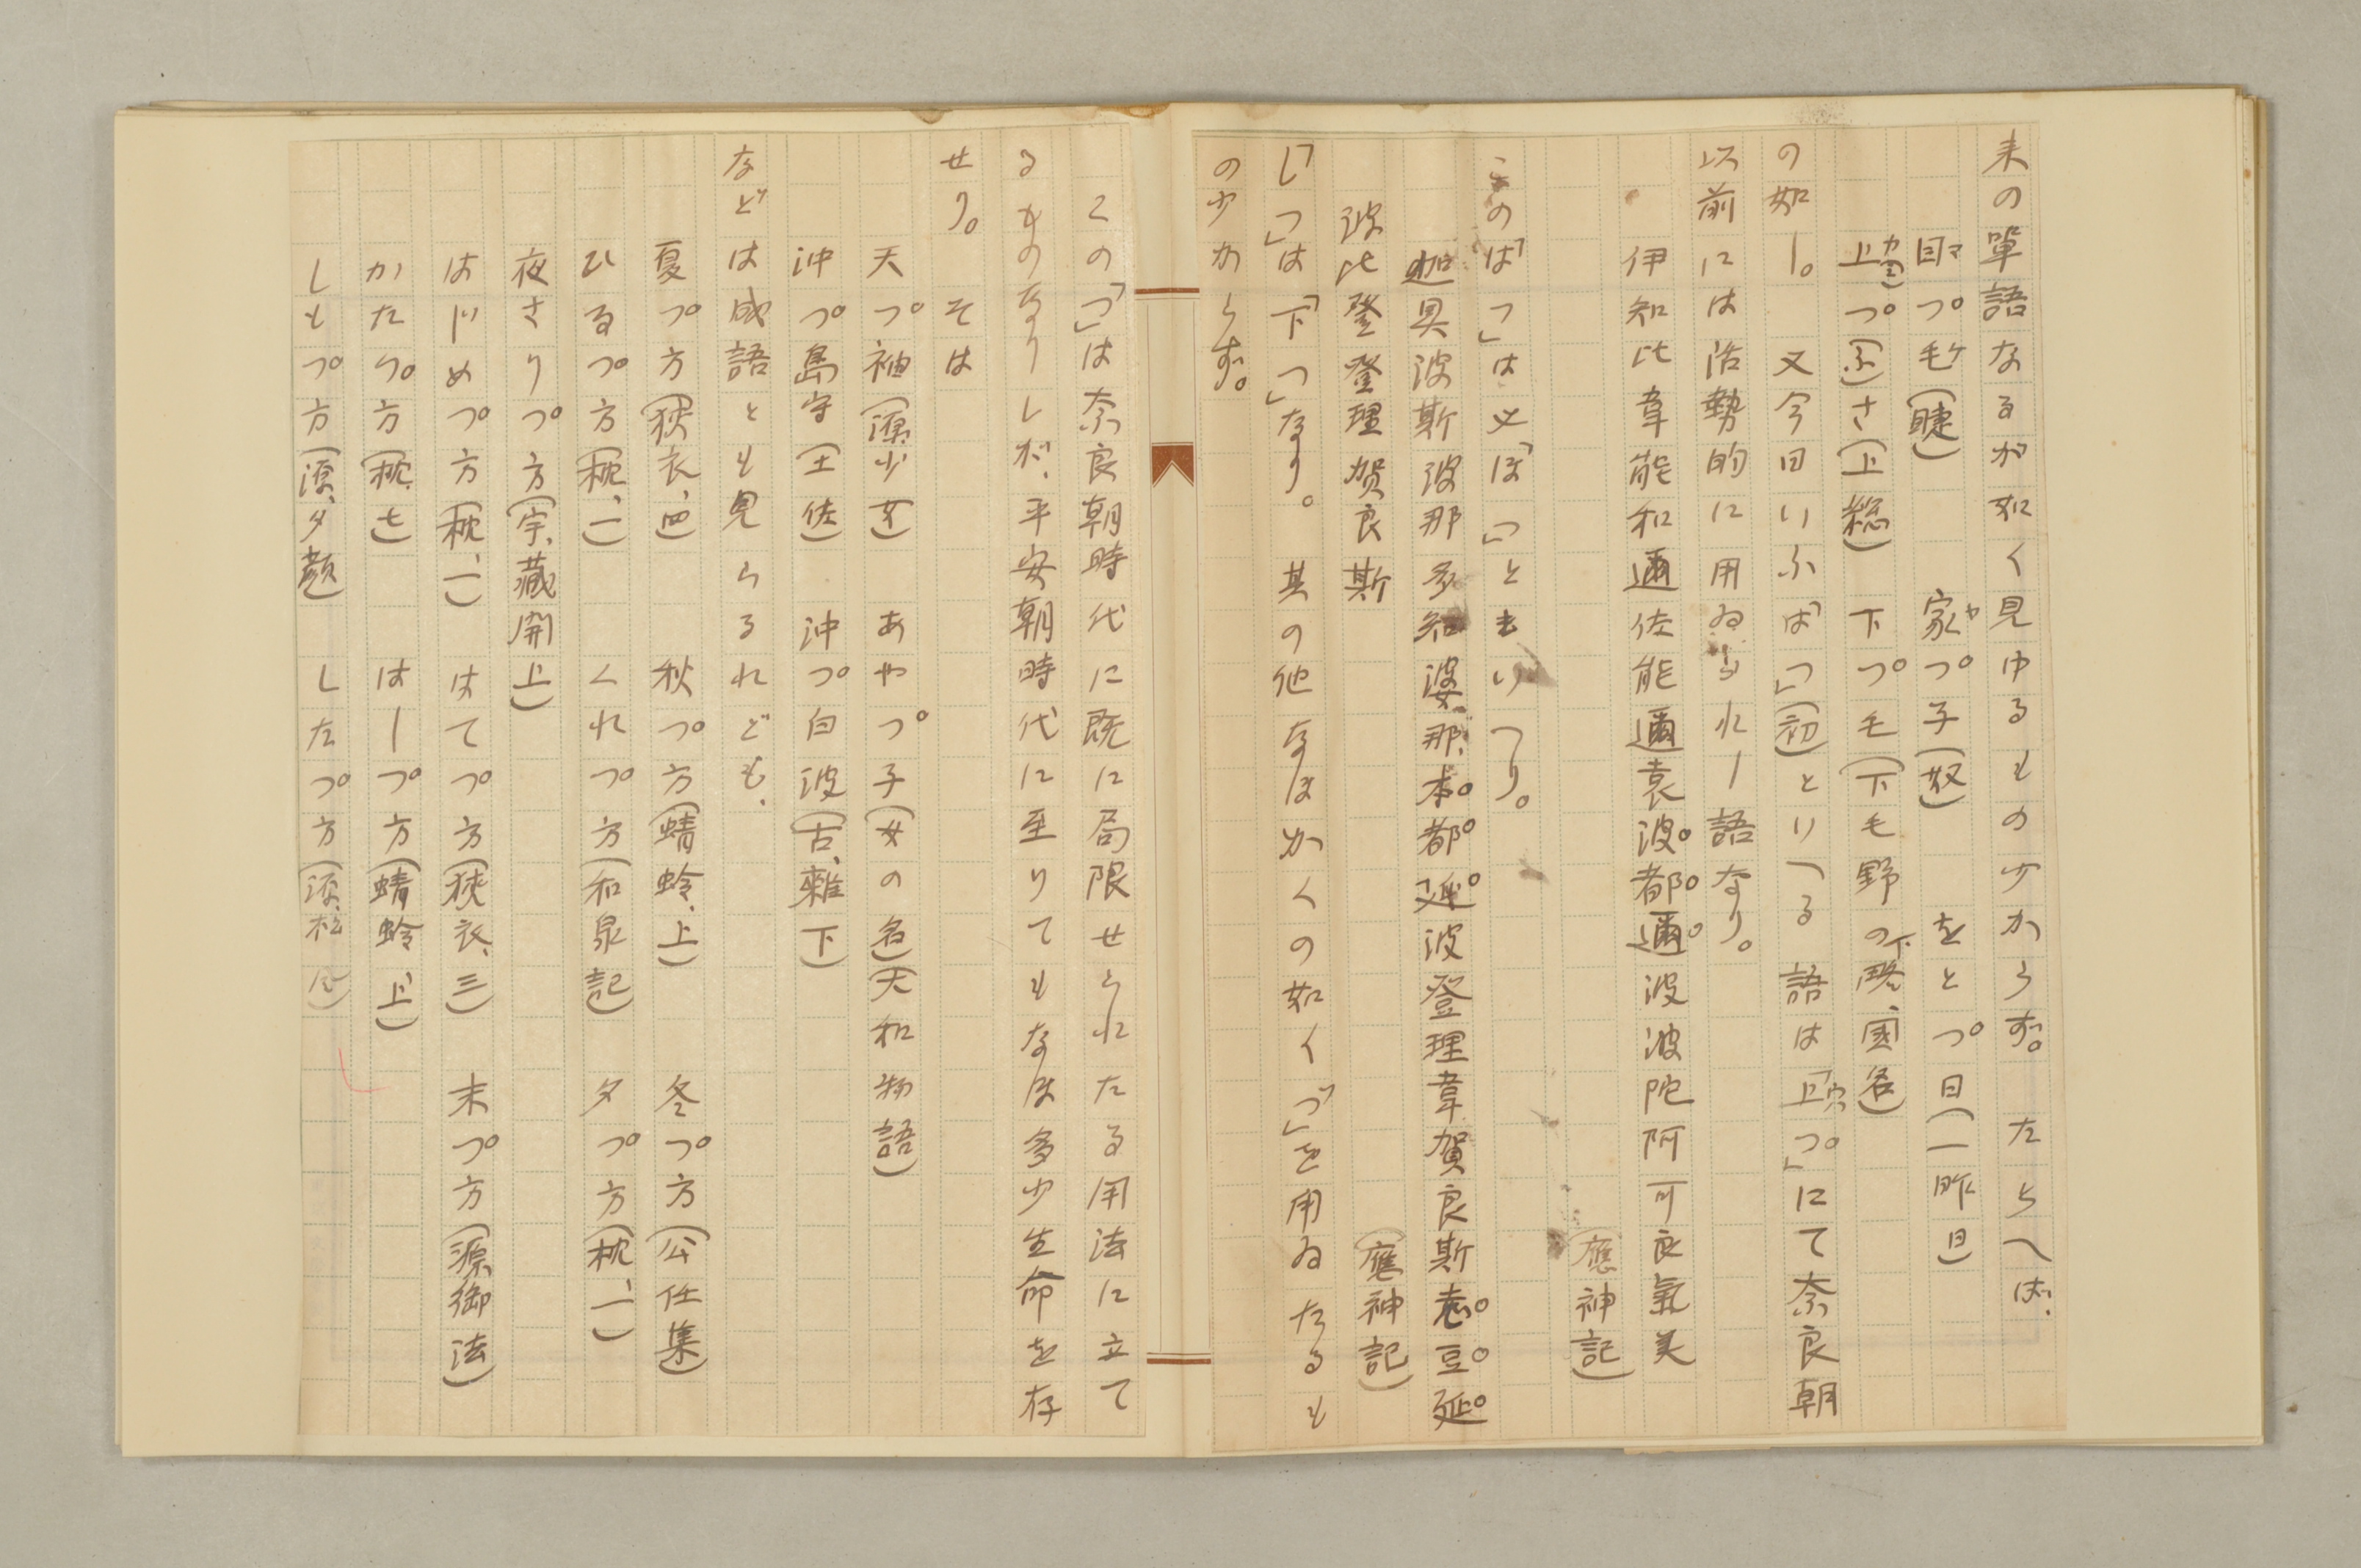 来の單語なるが如く見ゆるもの少からず。たとへば、
目マつ毛ケ(睫)　家ヤつ子(奴)　をとつ日(一昨日)
上つふさ(上総)　下つ毛(下毛野の下略、國名)
の如し。又今日いふ「はつ」(初)といへる語は「上つ」にて奈良朝
以前には活勢的に用ゐられし語なり。
伊知比韋能和邇佐能邇袁波都邇波波陀阿可良氣美
(應神記)
この「はつ」は又「ほつ」ともいへり。
迦具波斯波那多知婆那、本都延波登理韋賀良斯志豆延
波比登登理賀良斯　(應神記)
「しつ」は「下つ」なり。其の他なほかくの如く「つ」を用ゐたるも
の少からず。
この「つ」は奈良朝時代に既に局限せられたる用法に立て
るものなりしが、平安朝時代に至りてもなほ多少生命を存
せり。そは
天つ袖(源、少女)　あやつ子(女の名)(天和物語)
沖つ島守(土佐)　沖つ白波(古、雜下)
などは成語とも見らるれども、
夏つ方(狹衣、四)　秋つ方(蜻蛉、上)　冬つ方(公任集)
ひるつ方(枕、一)　くれつ方(和泉記)　夕つ方(枕、一)
夜さりつ方(宇、藏開上)
はじめつ方(枕、一)　はてつ方(狹衣、三)　末つ方(源、御法)
かたつ方(枕、七)　はしつ方(蜻蛉、上)
しもつ方(源、夕顔)　したつ方(源、松